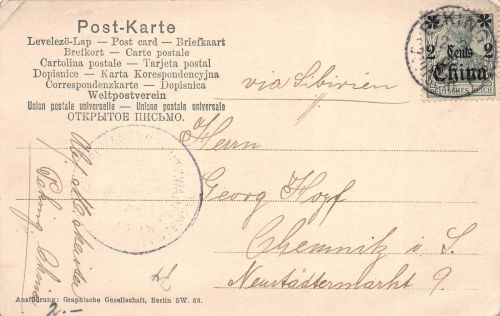 Post-Karte
Levelező-Lap — Post card — Briefkaart
Brefkort — Carte postale
Cartolina postale — Tarjeta postal
Dopisnice - Karta Korespondencyjna
Correspondenzkarte - Dopisnica
Weltpostverein
Union postale universelle — Unione postale universale
ОТКРЫТОЕ ПИСЬМО.
via Sibirien
PEKING
2 Cents 2
China
DEUTSCHES REICH
Herrn
Georg Hopf
Chemnitz i. S.
Neustädtermarkt 9.
Peking China
2.-
Ausführung: Graphische Gesellschaft, Berlin SW. 68.